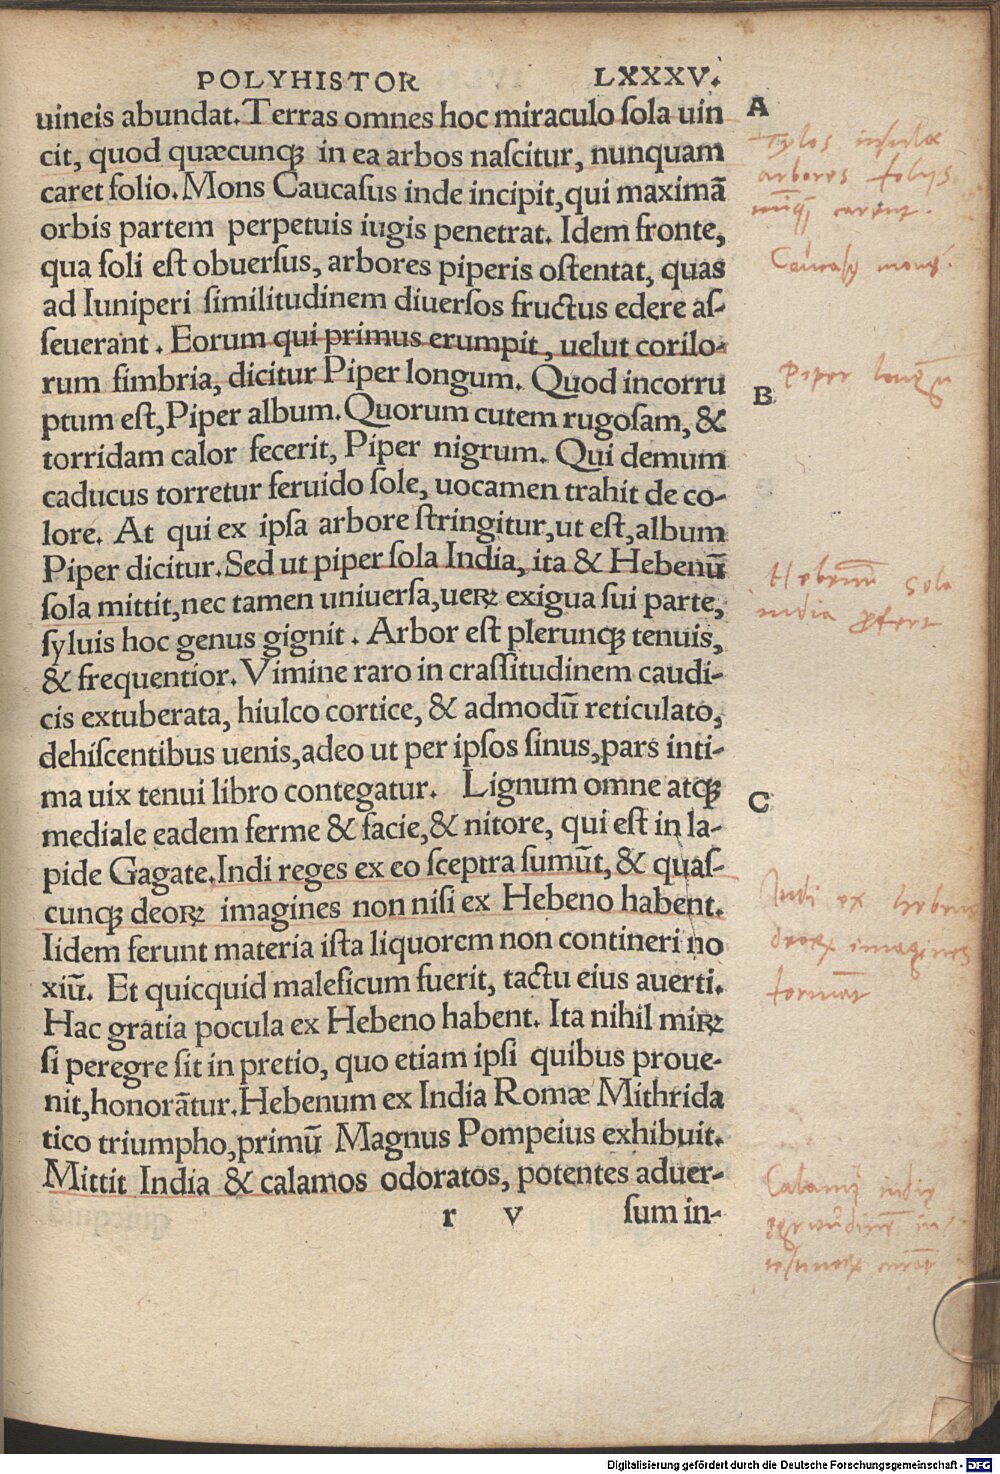 POLYHISTOR LXXXV.
uineis abundat. Terras omnes hoc miraculo ſola uin
cit, quod quæcunqꝫ in ea arbos naſcitur, nunquam
caret folio. Mons Caucaſus inde incipit, qui maximã
orbis partem perpetuis iugis penetrat. Idem fronte,
qua ſoli eſt obuerſus, arbores piperis oſtentat, quas
ad Iuniperi ſimilitudinem diuerſos fructus edere aſ-
ſeuerant. Eorum qui primus erumpit, uelut corilo-
rum fimbria, dicitur Piper longum. Quod incorru
ptum eſt, Piper album. Quorum cutem rugoſam, &
torridam calor fecerit, Piper nigrum. Qui demum
caducus torretur feruido ſole, uocamen trahit de co-
lore. At qui ex ipſa arbore ſtringitur, ut eſt, album
Piper dicitur. Sed ut piper ſola India, ita & Hebenũ
ſola mittit, nec tamen uniuerſa, ueꝝ exigua ſui parte,
ſyluis hoc genus gignit. Arbor eſt plerunqꝫ tenuis,
& frequentior. Vimine raro in craſſitudinem caudi-
cis extuberata, hiulco cortice, & admodũ reticulato,
dehiſcentibus uenis, adeo ut per ipſos ſinus, pars inti-
ma uix tenui libro contegatur. Lignum omne atqꝫ
mediale eadem ferme & facie, & nitore, qui eſt in la-
pide Gagate. Indi reges ex eo ſceptra ſumũt, & quaſ-
cunqꝫ deoꝝ imagines non niſi ex Hebeno habent.
Iidem ferunt materia iſta liquorem non contineri no
xiũ. Et quicquid maleficum fuerit, tactu eius auerti.
Hac gratia pocula ex Hebeno habent. Ita nihil miꝝ
ſi peregre ſit in pretio, quo etiam ipſi quibus proue-
nit, honorãtur. Hebenum ex India Romæ Mithrida
tico triumpho, primũ Magnus Pompeius exhibuit.
Mittit India & calamos odoratos, potentes aduer-
r v ſum in-
A
Tylos inſulæ
arbores folijs
carent.
Caucaſꝰ mons.
B
Piper longũ
Hebenũ sola
india ꝓfert
C
Indi ex hebeno
deoꝝ imagines
formãt
Calami indię
Digitalisierung gefördert durch die Deutsche Forschungsgemeinschaft - DFG